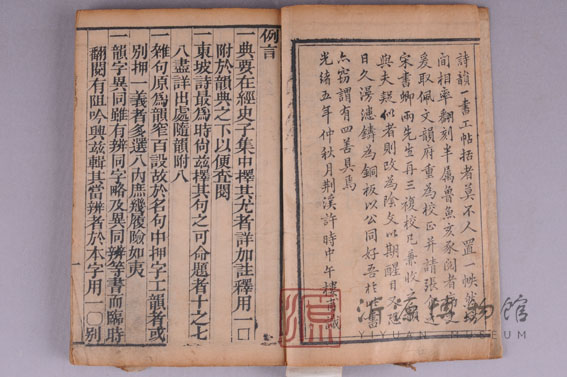 詩韻一書工帖括者莫不人置一帙
間相率翻刻半屬魯魚亥豕閱者
爰取佩文韻府重為校正并請張
宋書卿兩先生再三複校凡兼收
與夫疑似者則改為陰文以期醒目
日久漫漶鑄為銅板以公同好至於
點竊謂有四善具焉
光緒五年仲秋月荆溪許時中午樓甫識
例言
一典要在經史子集中擇其尤者詳加註釋用一口
附於韻典之下以便查閱
一東坡詩最為時尚茲擇其句之可命題者十之七
八盡詳出處隨韻附入
一雜句原為韻窄百設故於名句中押字工韻者或
別押一義者多選入內庶幾履險如夷
一韻字異同雖有辨同字略及異同辨等書而臨時
翻閱有阻吟興茲輯其當辨者於本字用一〇別
一
源
YIYUAN MUSEUM
博物館